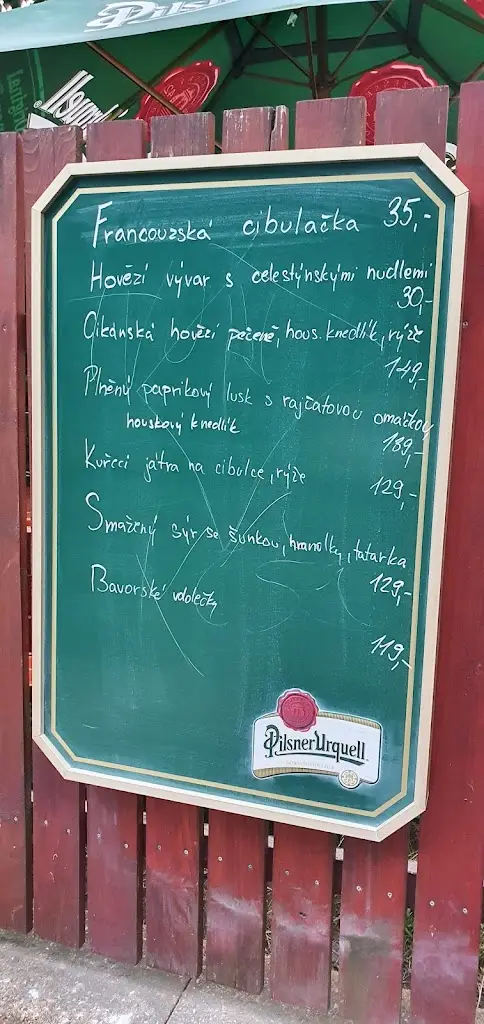 Pilsner U
Francouzská cibulačka 35,-
Hovězí vývar s celestýnskými nudlemi
30,-
Cikánská hovězí pečeně, hous. knedlík, rýže
149,-
Plněný paprikový lusk s rajčatovou omáčkou
houskový knedlík
139,-
Kuřecí játra na cibulce, rýže
129,-
Smažený sýr se šunkou, hranolky, tatarka
129,-
Bavorské vdolečky
119,-
Pilsner Urquell